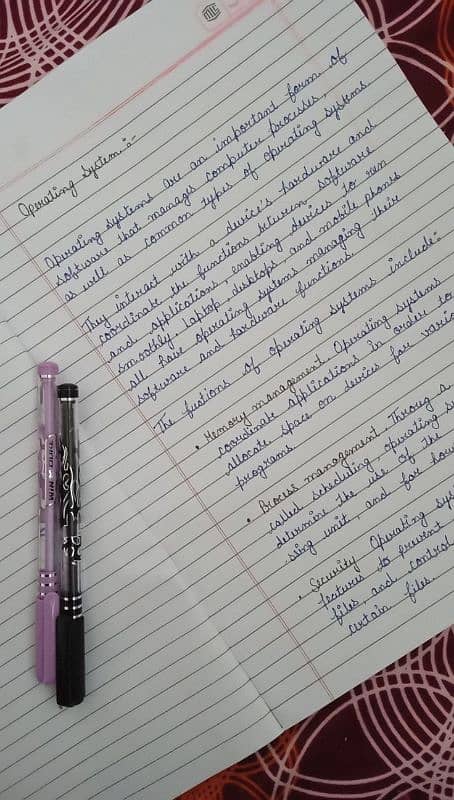 Operating System :-
Operating systems are an important form of
software that manages computer processes,
as well as common types of operating systems
They interact with a device's hardware and
coordinate the functions between software
and applications, enabling devices to run
smoothly. Laptop, desktops, and mobile phones
all have operating systems managing their
software and hardware functions.
The fuctions of operating systems include:
• Memory management. Operating systems
coordinate applications in order to
allocate space on devices for vario
programs.
• Process management. Throug a
called scheduling, operating sy
determine the use of the
sing unit, and for how
• Security Operating syst
features to prevent
files and control
certain files.
WIN